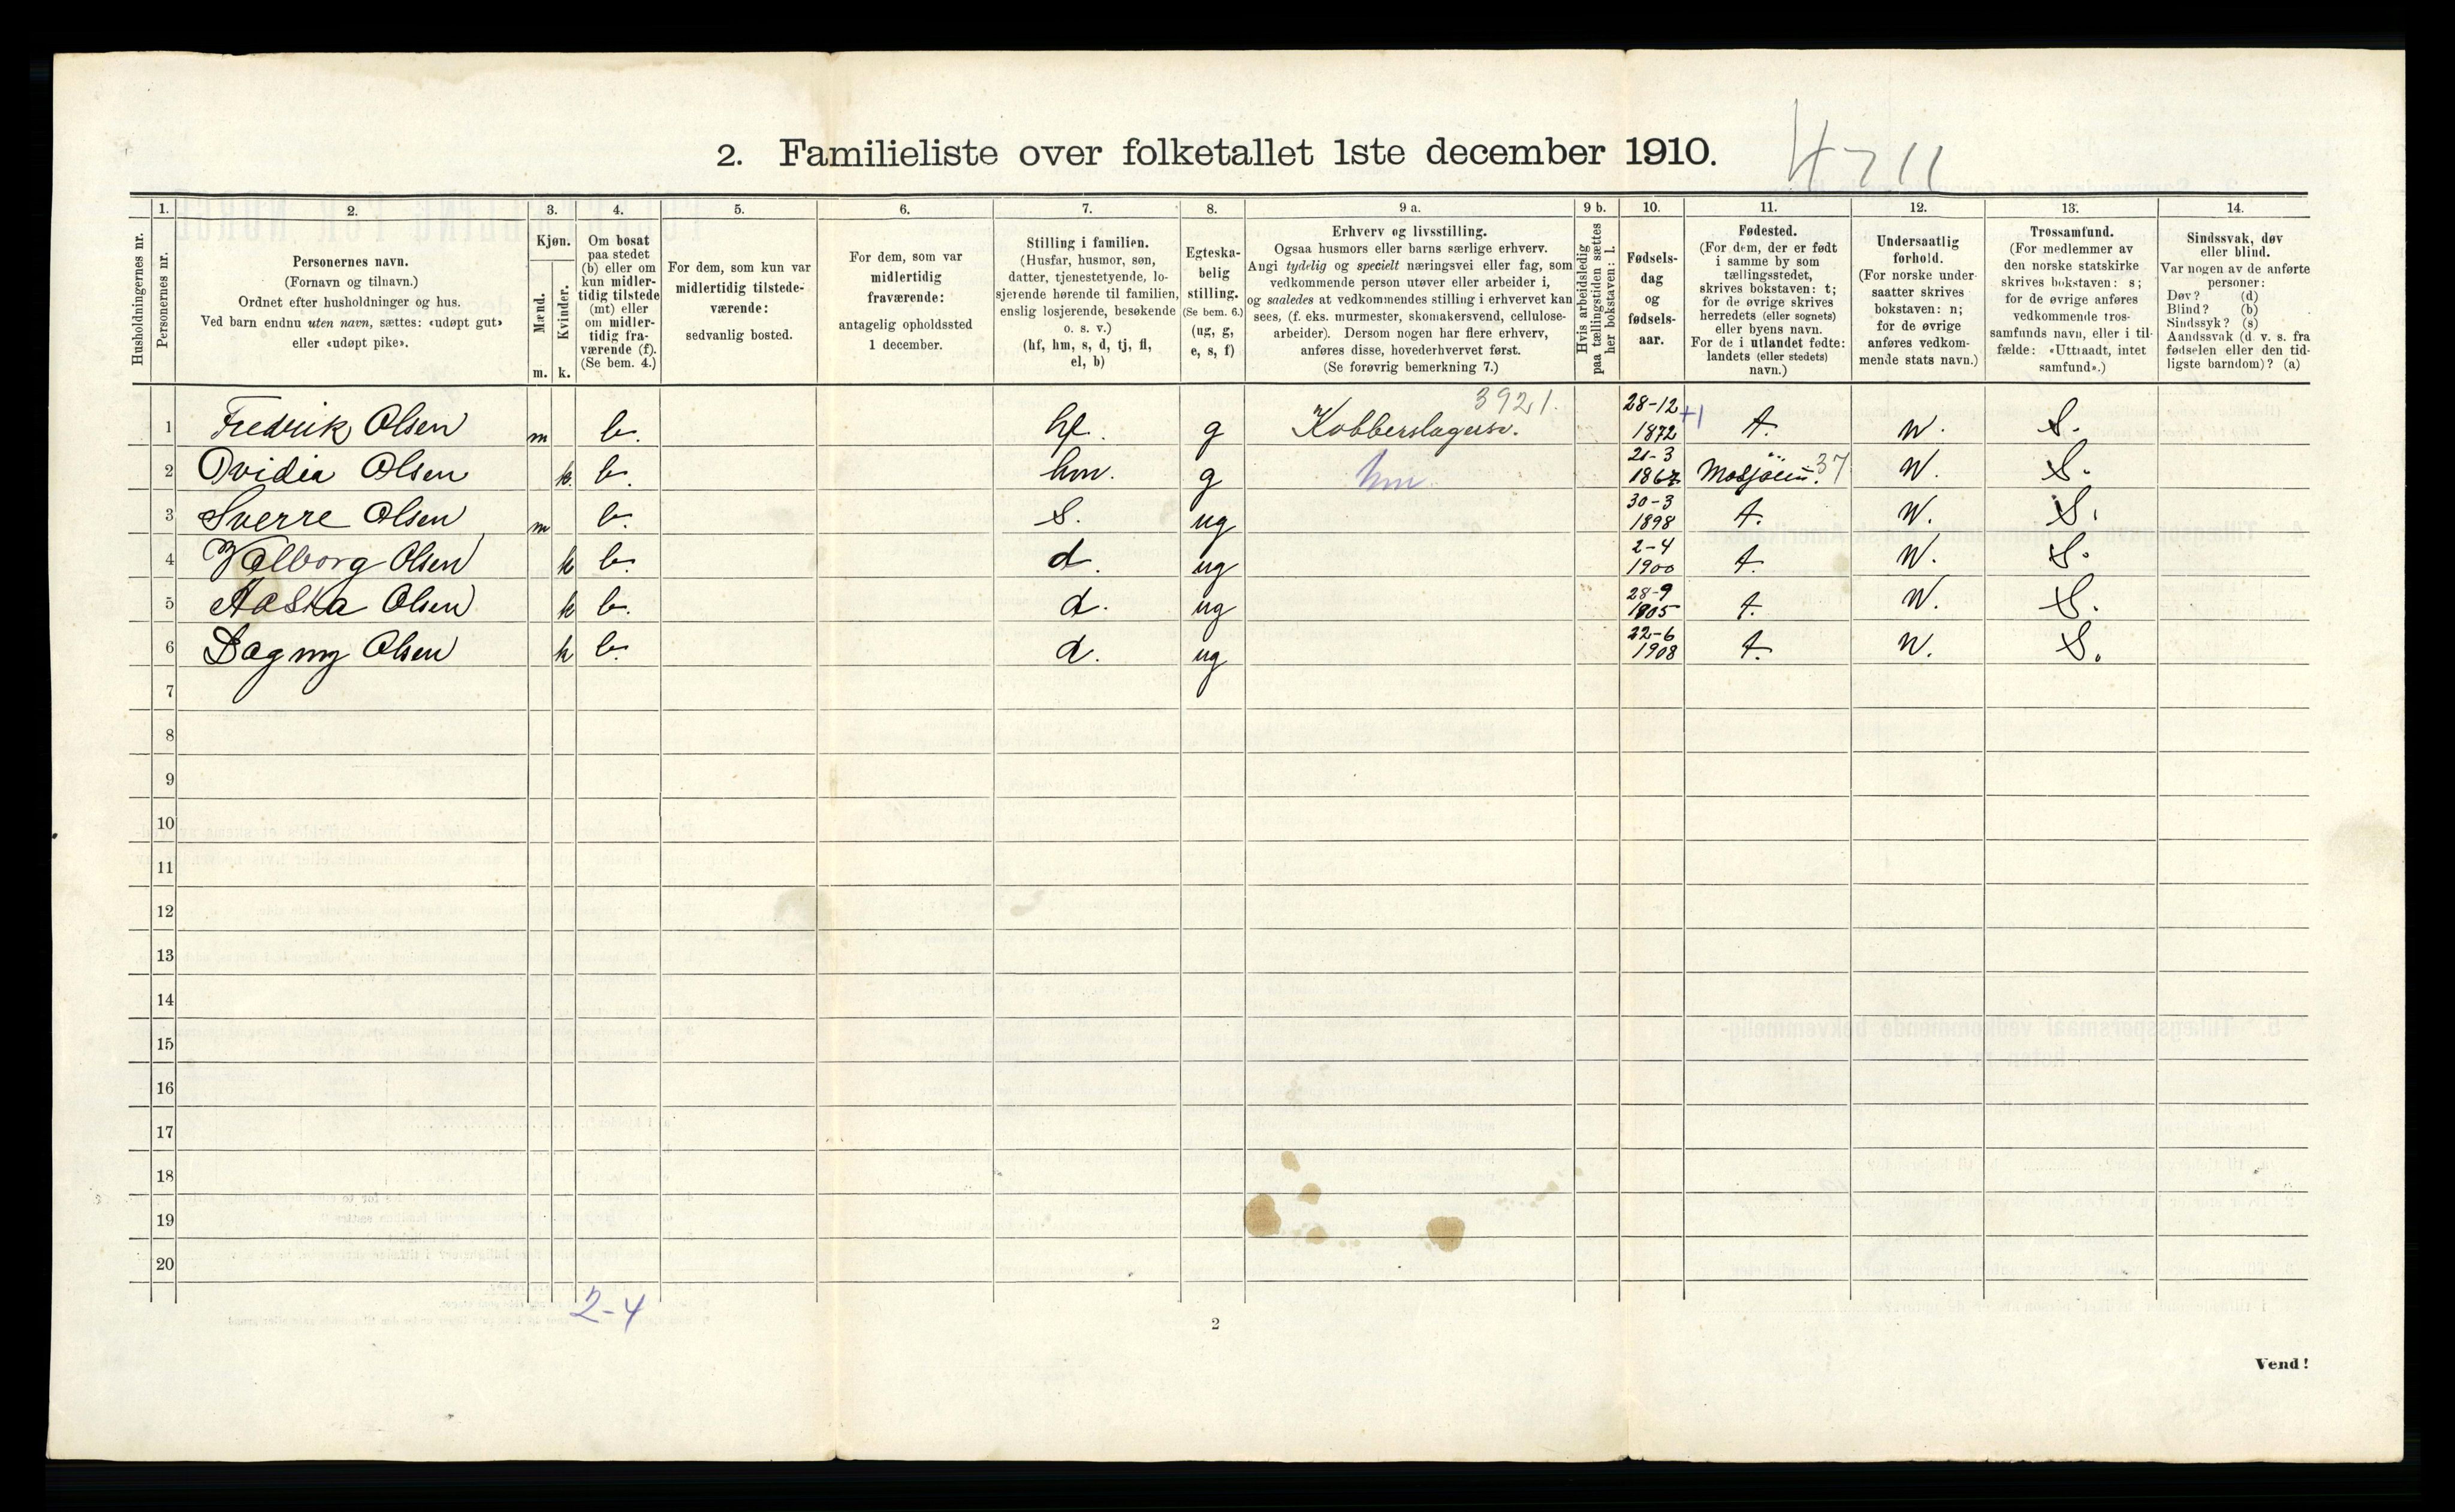 2. Familieliste over folketallet 1ste december 1910.
Husholdningernes nr.
1.
Personernes nr.
2.
Personernes navn.
(Fornavn og tilnavn.)
Ordnet efter husholdninger og hus.
Ved barn endnu uten navn, sættes: «udøpt gut»
eller «udøpt pike».
3.
Kjøn.
Mænd.
Kvinder.
m. k.
4.
Om bosat
paa stedet
(b) eller om
kun midler-
tidig tilstede
(mt) eller
om midler-
tidig fra-
værende (f).
(Se bem. 4.)
5.
For dem, som kun var
midlertidig tilstede-
værende:
sedvanlig bosted.
6.
For dem, som var
midlertidig
fraværende:
antagelig opholdssted
1 december.
7.
Stilling i familien.
(Husfar, husmor, søn,
datter, tjenestetyende, lo-
sjerende hørende til familien,
enslig losjerende, besøkende
o. s. v.)
(hf, hm, s, d, tj, fl,
el, b)
8.
Egteska-
belig
stilling.
(Se bem. 6.)
(ug, g,
e, s, f)
9 a.
Erhverv og livsstilling.
Ogsaa husmors eller barns særlige erhverv.
Angi tydelig og specielt næringsvei eller fag, som
vedkommende person utøver eller arbeider i,
og saaledes at vedkommendes stilling i erhvervet kan
sees, (f. eks. murmester, skomakersvend, cellulose-
arbeider). Dersom nogen har flere erhverv,
anføres disse, hovederhvervet først.
(Se forøvrig bemerkning 7.)
9 b.
Hvis arbeidsledig
paa tællingstiden sættes
her bokstaven: l.
10.
Fødsels-
dag
og
fødsels-
aar.
11.
Fødested.
(For dem, der er født
i samme by som
tællingsstedet,
skrives bokstaven: t;
for de øvrige skrives
herredets (eller sognets)
eller byens navn.
For de i utlandet fødte:
landets (eller stedets)
navn.)
12.
Undersaatlig
forhold.
(For norske under-
saatter skrives
bokstaven: n;
for de øvrige
anføres vedkom-
mende stats navn.)
13.
Trossamfund.
(For medlemmer av
den norske statskirke
skrives bokstaven: s;
for de øvrige anføres
vedkommende tros-
samfunds navn, eller i til-
fælde: «Uttraadt, intet
samfund».)
14.
Sindssvak, døv
eller blind.
Var nogen av de anførte
personer:
Døv? (d)
Blind? (b)
Sindssyk? (s)
Aandssvak (d. v. s. fra
fødselen eller den tid-
ligste barndom)? (a)
3921.
1 Fredrik Olsen m b. hf. g Kobberslagersv. 28-12 1872 +1 t. N. S.
2 Ovidia Olsen k. b. hm. g hm 21-3 1867 Mosjøen. 37 N. S.
3 Sverre Olsen m b. s. ug 30-3 1898 t. N. S.
4 Valborg Olsen k b. d. ug 2-4 1900 t. N. S.
5 Aasta Olsen k b. d. ug 28-9 1905 t. N. S.
6 Dagny Olsen k b. d. ug 22-6 1908 t. N. S.
7
8
9
10
11
12
13
14
15
16
17
18
19
20
2-4
2
Vend!